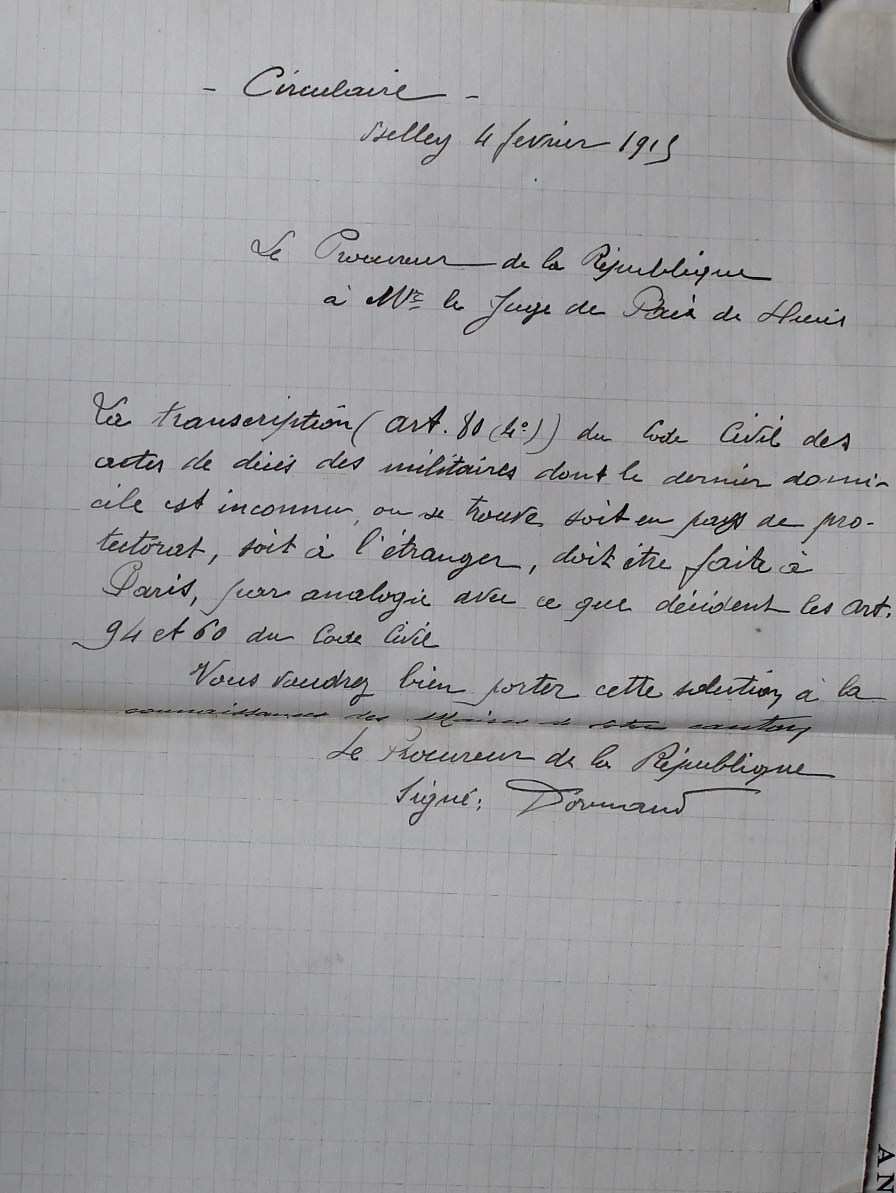 - Circulaire -
Belley 4 fevrier 1915
Le Procureur de la République
à Mr le Juge de Paix de
La transcription (art. 80 (4°)) du Code Civil des
actes de décès des militaires dont le dernier domi-
cile est inconnu, ou se trouve soit en pays de pro-
tectorat, soit à l'étranger, doit être faite à
Paris, par analogie avec ce que décident les art.
94 et 60 du Code Civil
Vous voudrez bien porter cette solution à la
connaissance des Maires de votre canton
Le Procureur de la République
Signé:
AN